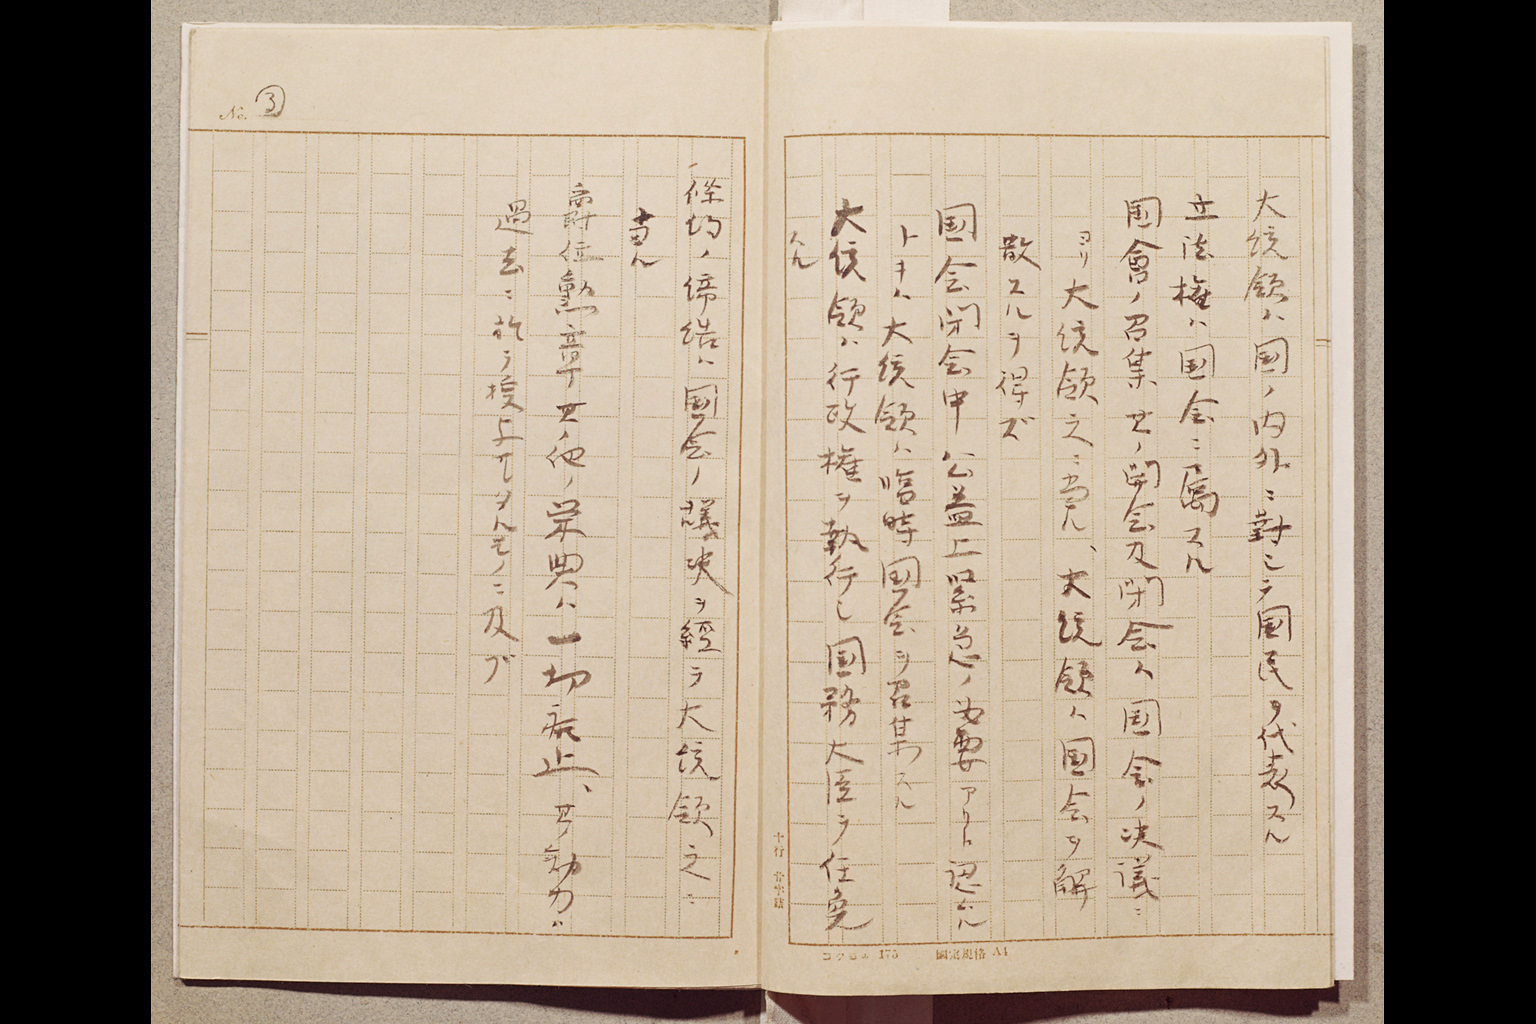 大統領ハ国ノ内外ニ對シテ国民ヲ代表スル
立法権ハ国会ニ属スル
国會ノ召集其ノ開会及閉会ハ国会ノ決議ニ
ヨリ大統領之ニ當ル、大統領ハ国会ヲ解
散スルヲ得ズ
国会閉会中公益上緊急ノ必要アリト認ムル
トキハ大統領ハ臨時国会ヲ召集スル
大統領ハ行政権ヲ執行シ国務大臣ヲ任免
スル
條約ノ締結ハ国会ノ議決ヲ經テ大統領之ニ
當ル
爵位勲章其ノ他ノ栄典ハ一切廃止、其ノ効力ハ
過去ニ於テ授与
モノニ及ブ
No. ③
十行
コクヨ 175 國定規格 A4